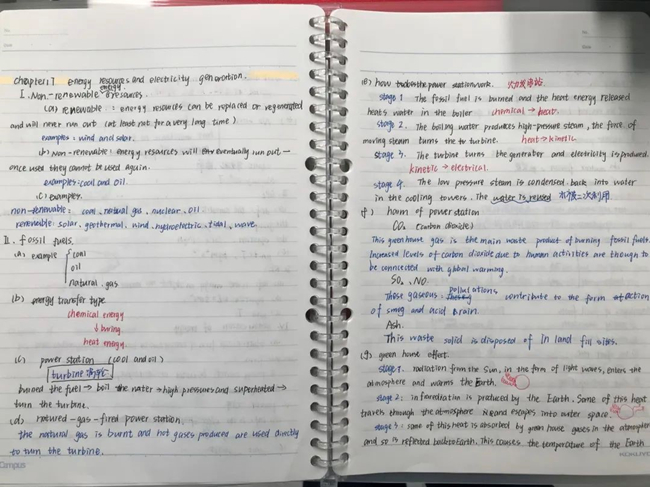 chapter:7 energy resources and electricity generation.
I. Non-renewable energy resources.
(a) renewable : energy resources can be replaced or regenerated
and will never run out (at least not for a very long time)
examples: wind and solar.
(b) Non-renewable: energy resources will eventually run out —
once used they cannot be used again.
examples: coal and oil.
(c) examples.
non-renewable: coal, natural gas, nuclear, oil
renewable: solar, geothermal, wind, hydroelectric, tidal, wave.
II. Fossil fuels.
(a) example { coal
oil
natural gas
(b) energy transfer type
chemical energy
↓
heat energy.
(c) power station (coal and oil)
turbine
the fuel → boil the water → high pressures and superheated →
turn the turbine.
(d) -gas-fired power station.
the natural gas is burnt and hot gases produced are used directly
to turn the turbine.
Campus
(e) how the power station work. 火力发电站
stage 1 The fossil fuel is burned and the heat energy released
heats water in the boiler chemical → heat.
stage 2. The boiling water produces high-pressure steam, the force of
moving steam turns the turbine. heat → kinetic
stage 3. The turbine turns the generator and electricity is produced.
kinetic → electrical.
stage 4. The low pressure steam is condensed back into water
in the cooling towers. The water is reused
(f) harm of power station
CO₂ (carbon dioxide)
This greenhouse gas is the main waste product of burning fossil fuels.
Increased levels of carbon dioxide due to human activities are though to
be connected with global warming.
SO₂, NO.
These gaseous pollutations contribute to the form of
of smog and acid rain.
Ash.
This waste solid is disposed of in land fill sites.
(g) green house effect.
stage 1. radiation from the Sun, in the form of light waves, enters the
atmosphere and warms the Earth.
stage 2: is produced by the Earth. Some of this heat
travels through the atmosphere and escapes into outer space.
stage 3: some of this heat is absorbed by green house gases in the atmosphere
and so is reflected back to Earth. This causes the temperature of the Earth